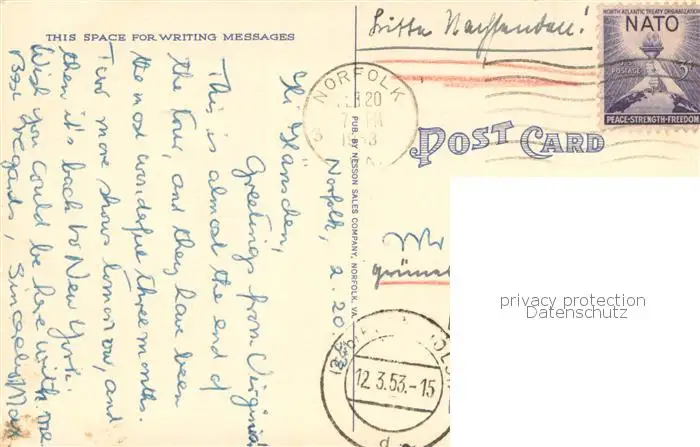 THIS SPACE FOR WRITING MESSAGES
Norfolk, 2.20.53
Hi Hänschen,
Greetings from Virginia
This is almost the end of
the tour, and they have been
the most wonderful three months.
Two more shows tomorrow, and
then it's back to New York.
Wish you could be here with me
Best regards, sincerely Max
PUB. BY NESSON SALES COMPANY, NORFOLK, VA.
Bitte Nachsenden!
NORFOLK
20
PM
NORTH ATLANTIC TREATY ORGANIZATION
NATO
U.S. POSTAGE 3¢
PEACE-STRENGTH-FREEDOM
POST CARD
Mr
12.3.53.-15
d
privacy protection
Datenschutz